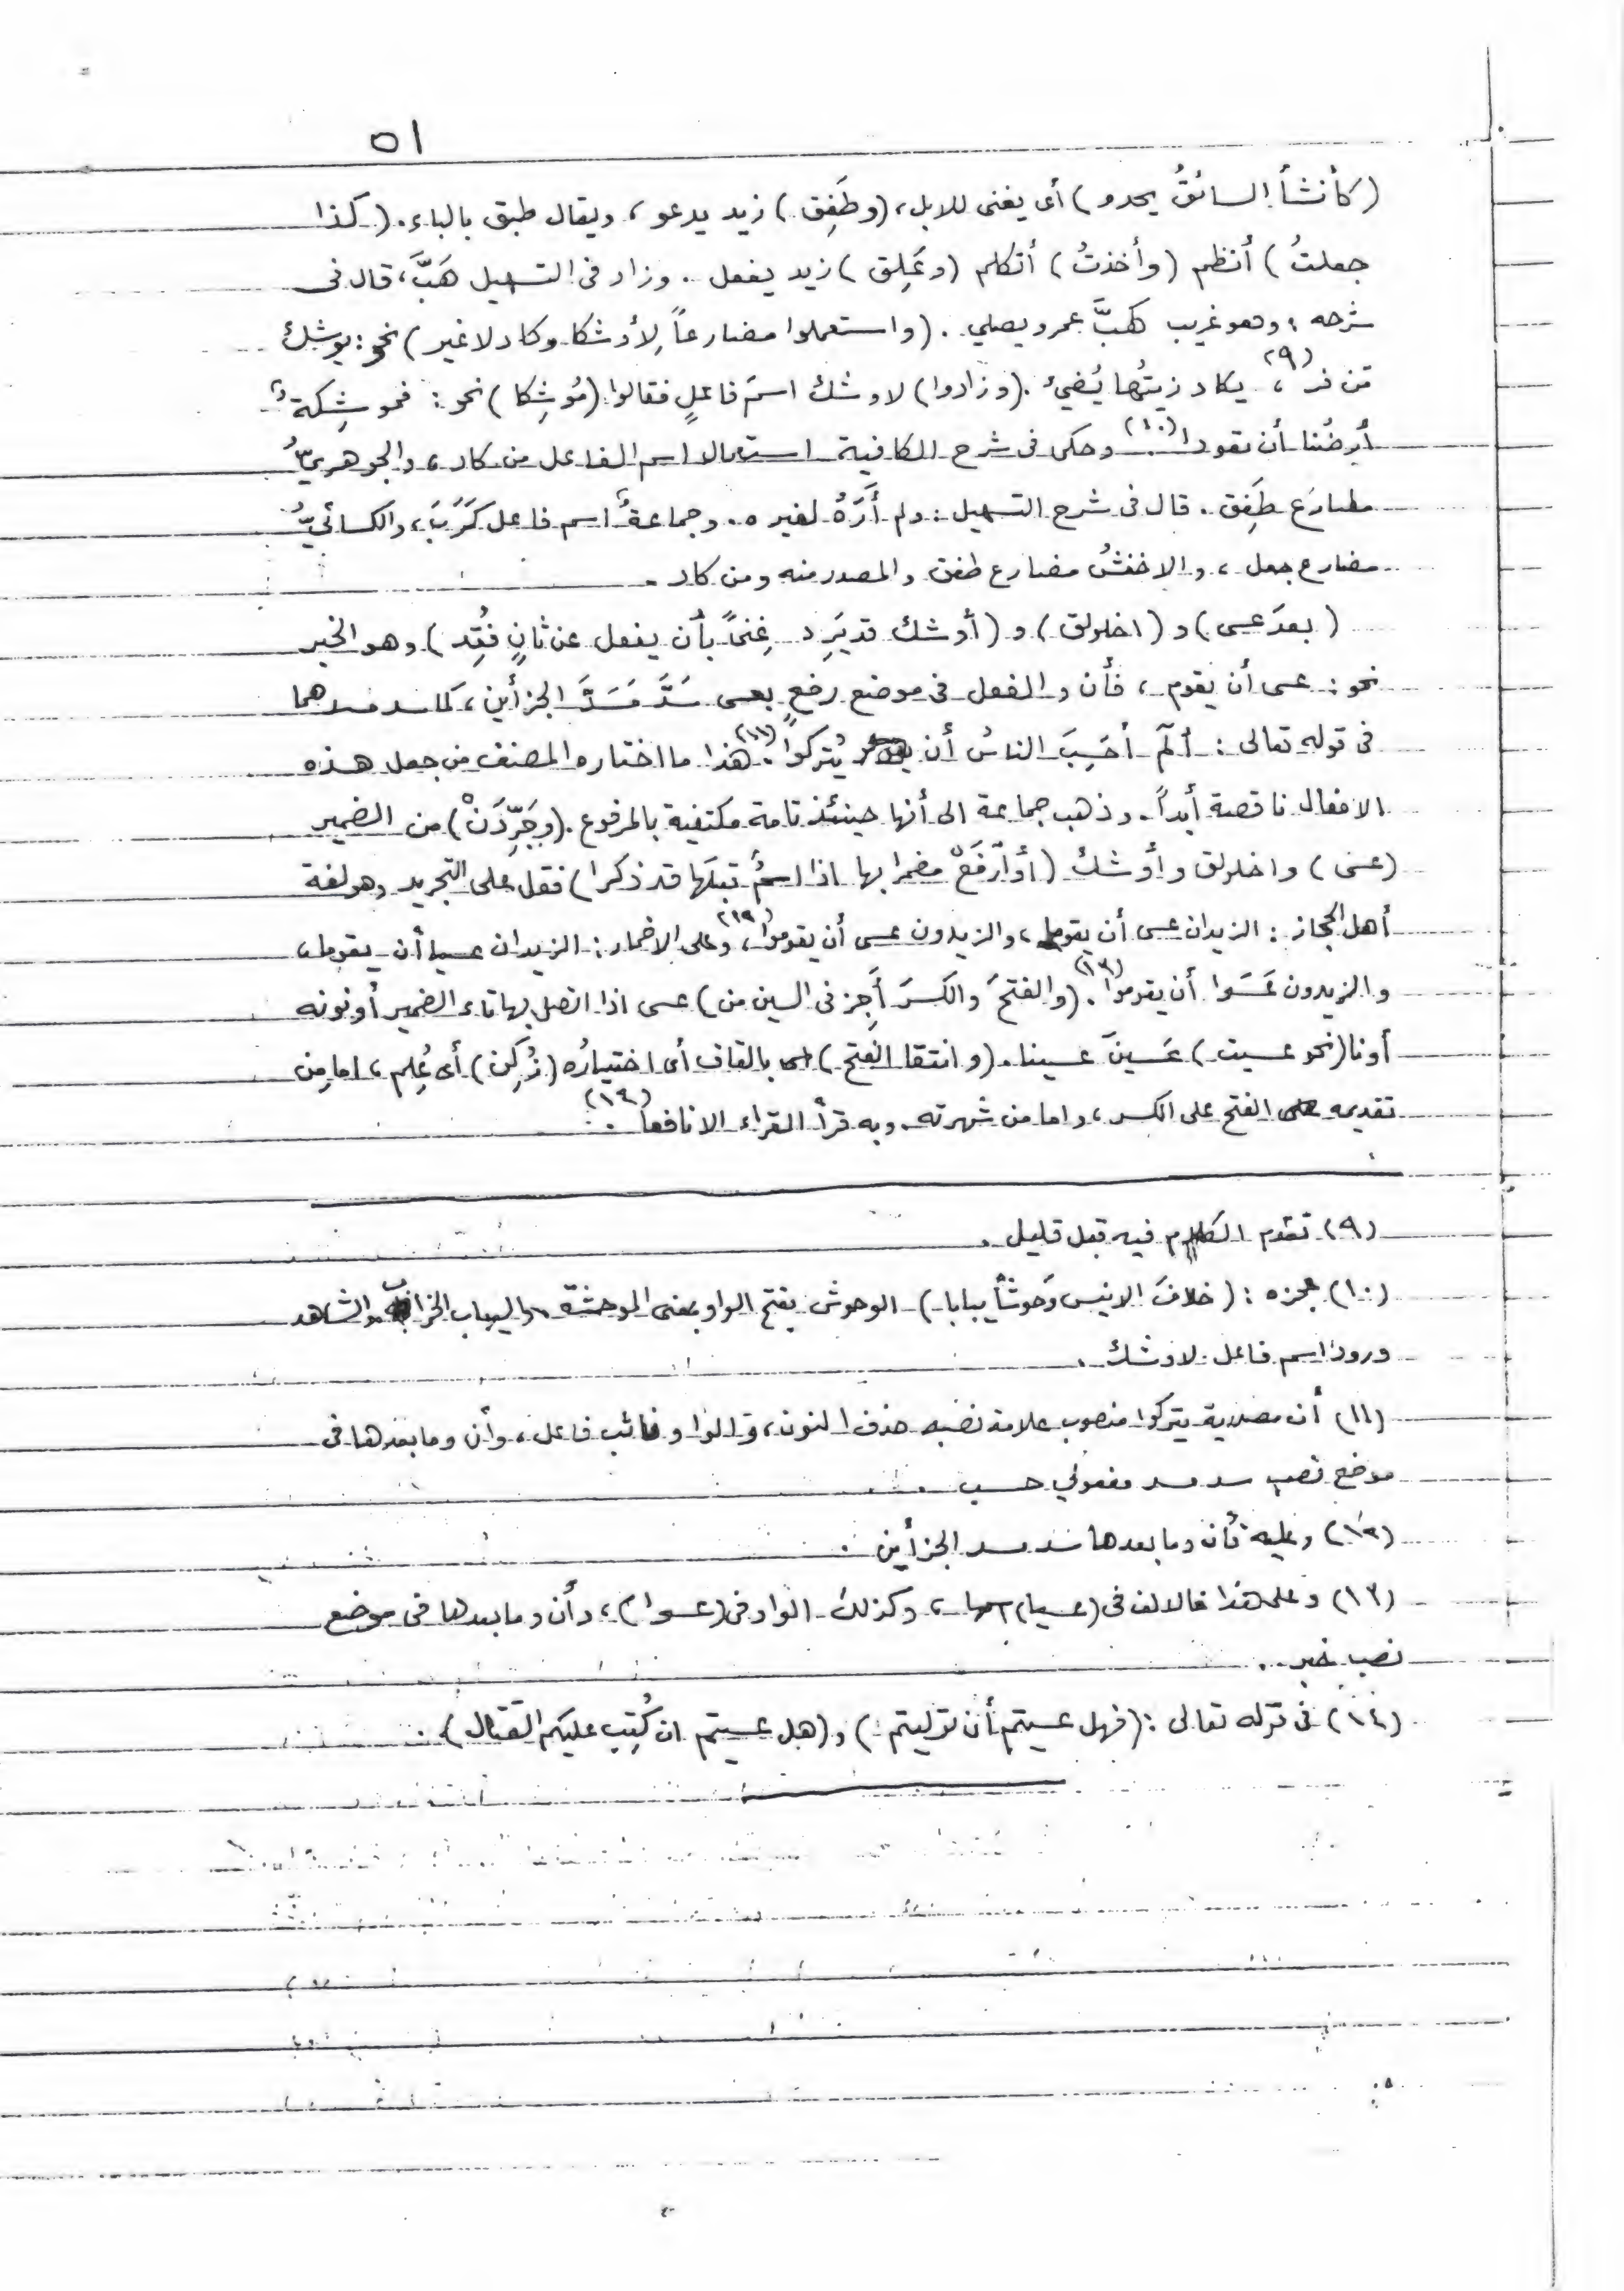 ٥١
(كأنشأ السائقُ يحدو) أى يغنى للابل، (وطَفِق) زيد يدعو، ويقال طبق بالباء. (كذا
جعلتُ) أنظم (وأخذتُ) أتكلم (وعَلِق) زيد يفعل. وزاد فى التسهيل هَبَّ، قال فى
شرحه: وهو غريب كهَبَّ عمرو يصلي. (واستعملوا مضارعاً لِأوشكا وكاد لا غير) نحو: يوشك
مَن فر (٩)، يكاد زيتُها يُضيءُ. (وزادوا) لاوشك اسمَ فاعلٍ فقالوا (مُوشِكا) نحو: فموشِكةٌ
أرضُنا أن تعودا (١٠). وحكى فى شرح الكافية استعمال اسم الفاعل من كاد، والجوهريُّ
مضارَع طَفِق. قال فى شرح التسهيل: ولم أَرَهُ لغيره. وجماعةٌ اسم فاعل كَرَبَ، والكسائيُّ
مضارع جعل، والاخفشُ مضارع طفق والمصدر منه ومن كاد.
(بعدَ عسى) و (اخلولق) و (أوشك قد يَرِد غِنىً بأن يفعل عن ثانٍ فُقِد) وهو الخبر
نحو: عسى أن يقوم، فأن والفعل فى موضع رفعٍ بعسى سَدَّ مَسَدَّ الجزأين، كما سد مسدهما
فى قوله تعالى: ألمَ أحَسِبَ الناسُ أن يُتركوا (١١). هذا ما اختاره المصنف من جعل هذه
الافعال ناقصة أبداً. وذهب جماعة الى أنها حينئذ تامة مكتفية بالمرفوع. (وجَرِّدَنْ) من الضمير
(عسى) واخلولق وأوشك (أو ارفَعْ مضمرا بها اذا اسمٌ قبلَها قد ذكرا) فقل على التجريد وهو لغة
أهل الحجاز: الزيدان عسى أن يقوما، والزيدون عسى أن يقوموا (١٢)، وعلى الاضمار: الزيدان عسيا أن يقوما،
والزيدون عَسَوا أن يقوموا (١٣). (والفتحَ والكسرَ أَجِز فى السين من) عسى اذا اتصل بها تاء الضمير أو نونه
أو نا (نحو عسيت) عَسَينَ عسينا. (وانتقا الفتح) بالقاف أى اختيارُه (زُكِن) أى عُلِم، اما مِن
تقديمه الفتح على الكسر، واما من شهرته. وبه قرأ القراء الا نافعاً (١٤).
(٩) تقدم الكلام فيه قبل قليل.
(١٠) عجزه: (خلافَ الانيس وَحوشاً يبابا) الوحوش بفتح الواو بمعنى الموحشة. واليباب الخراب. والشاهد
ورود اسم فاعل لاوشك.
(١١) أن مصدرية يتركوا منصوب علامة نصبه حذف النون، والواو نائب فاعل، وأن وما بعدها فى
موضع نصب سد مسد مفعولي حسب.
(١٢) وعليه فأن وما بعدها سد مسد الجزأين.
(١٣) وعلى هذا فالالف فى (عسيا) اسمها، وكذلك الواو فى (عسوا)، وأن وما بعدها فى موضع
نصب خبر.
(١٤) فى قوله تعالى: (فهل عسيتم أن توليتم) و (هل عسيتم ان كُتِب عليكم القتال).